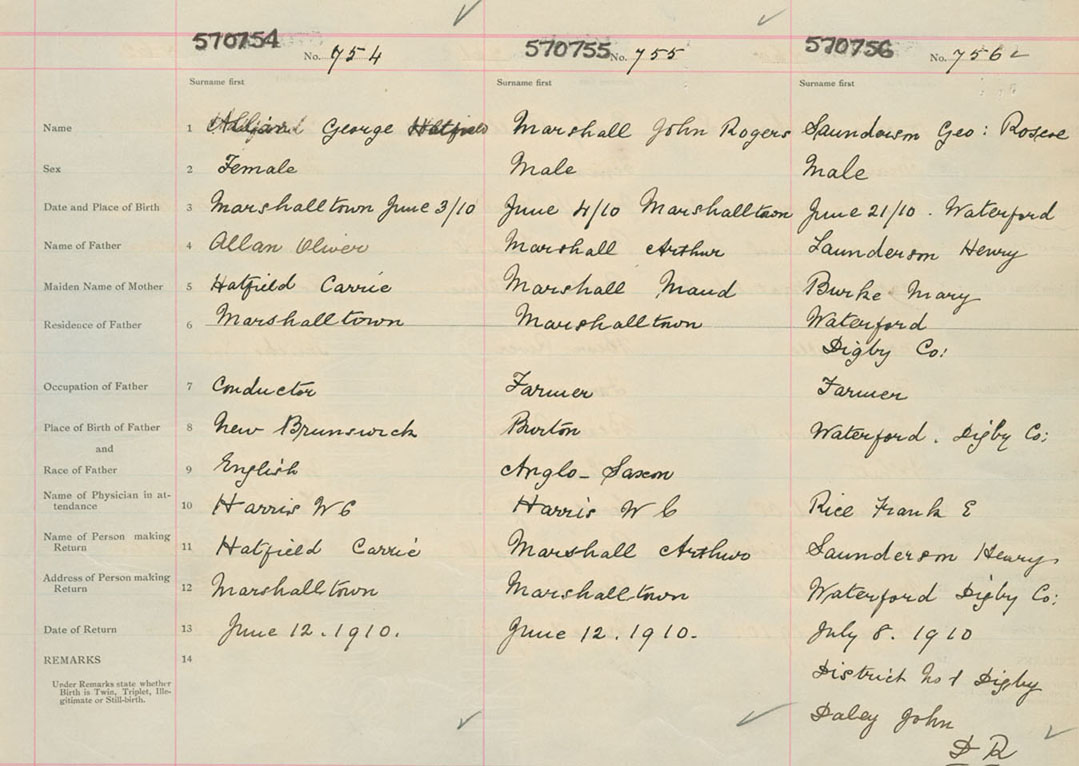 570754 No. 754 570755 No. 755 570756 No. 756
Surname first Surname first Surname first
Name 1 George Hatfield Marshall John Rogers Saunderson Geo: Roscoe
Sex 2 Female Male Male
Date and Place of Birth 3 Marshalltown June 3/10 June 4/10 Marshalltown June 21/10. Waterford
Name of Father 4 Allan Oliver Marshall Arthur Saunderson Henry
Maiden Name of Mother 5 Hatfield Carrie Marshall Maud Burke Mary
Residence of Father 6 Marshalltown Marshalltown Waterford
Digby Co:
Occupation of Father 7 Conductor Farmer Farmer
Place of Birth of Father 8 New Brunswick Burton Waterford. Digby Co:
and
Race of Father 9 English Anglo-Saxon
Name of Physician in at-
tendance 10 Harris W C Harris W C Rice Frank E
Name of Person making
Return 11 Hatfield Carrie Marshall Arthur Saunderson Henry
Address of Person making
Return 12 Marshalltown Marshalltown Waterford Digby Co:
Date of Return 13 June 12. 1910. June 12. 1910. July 8. 1910
REMARKS 14
District No 1 Digby
Under Remarks state whether
Birth is Twin, Triplet, Ille-
gitimate or Still-birth.
Daley John
D R